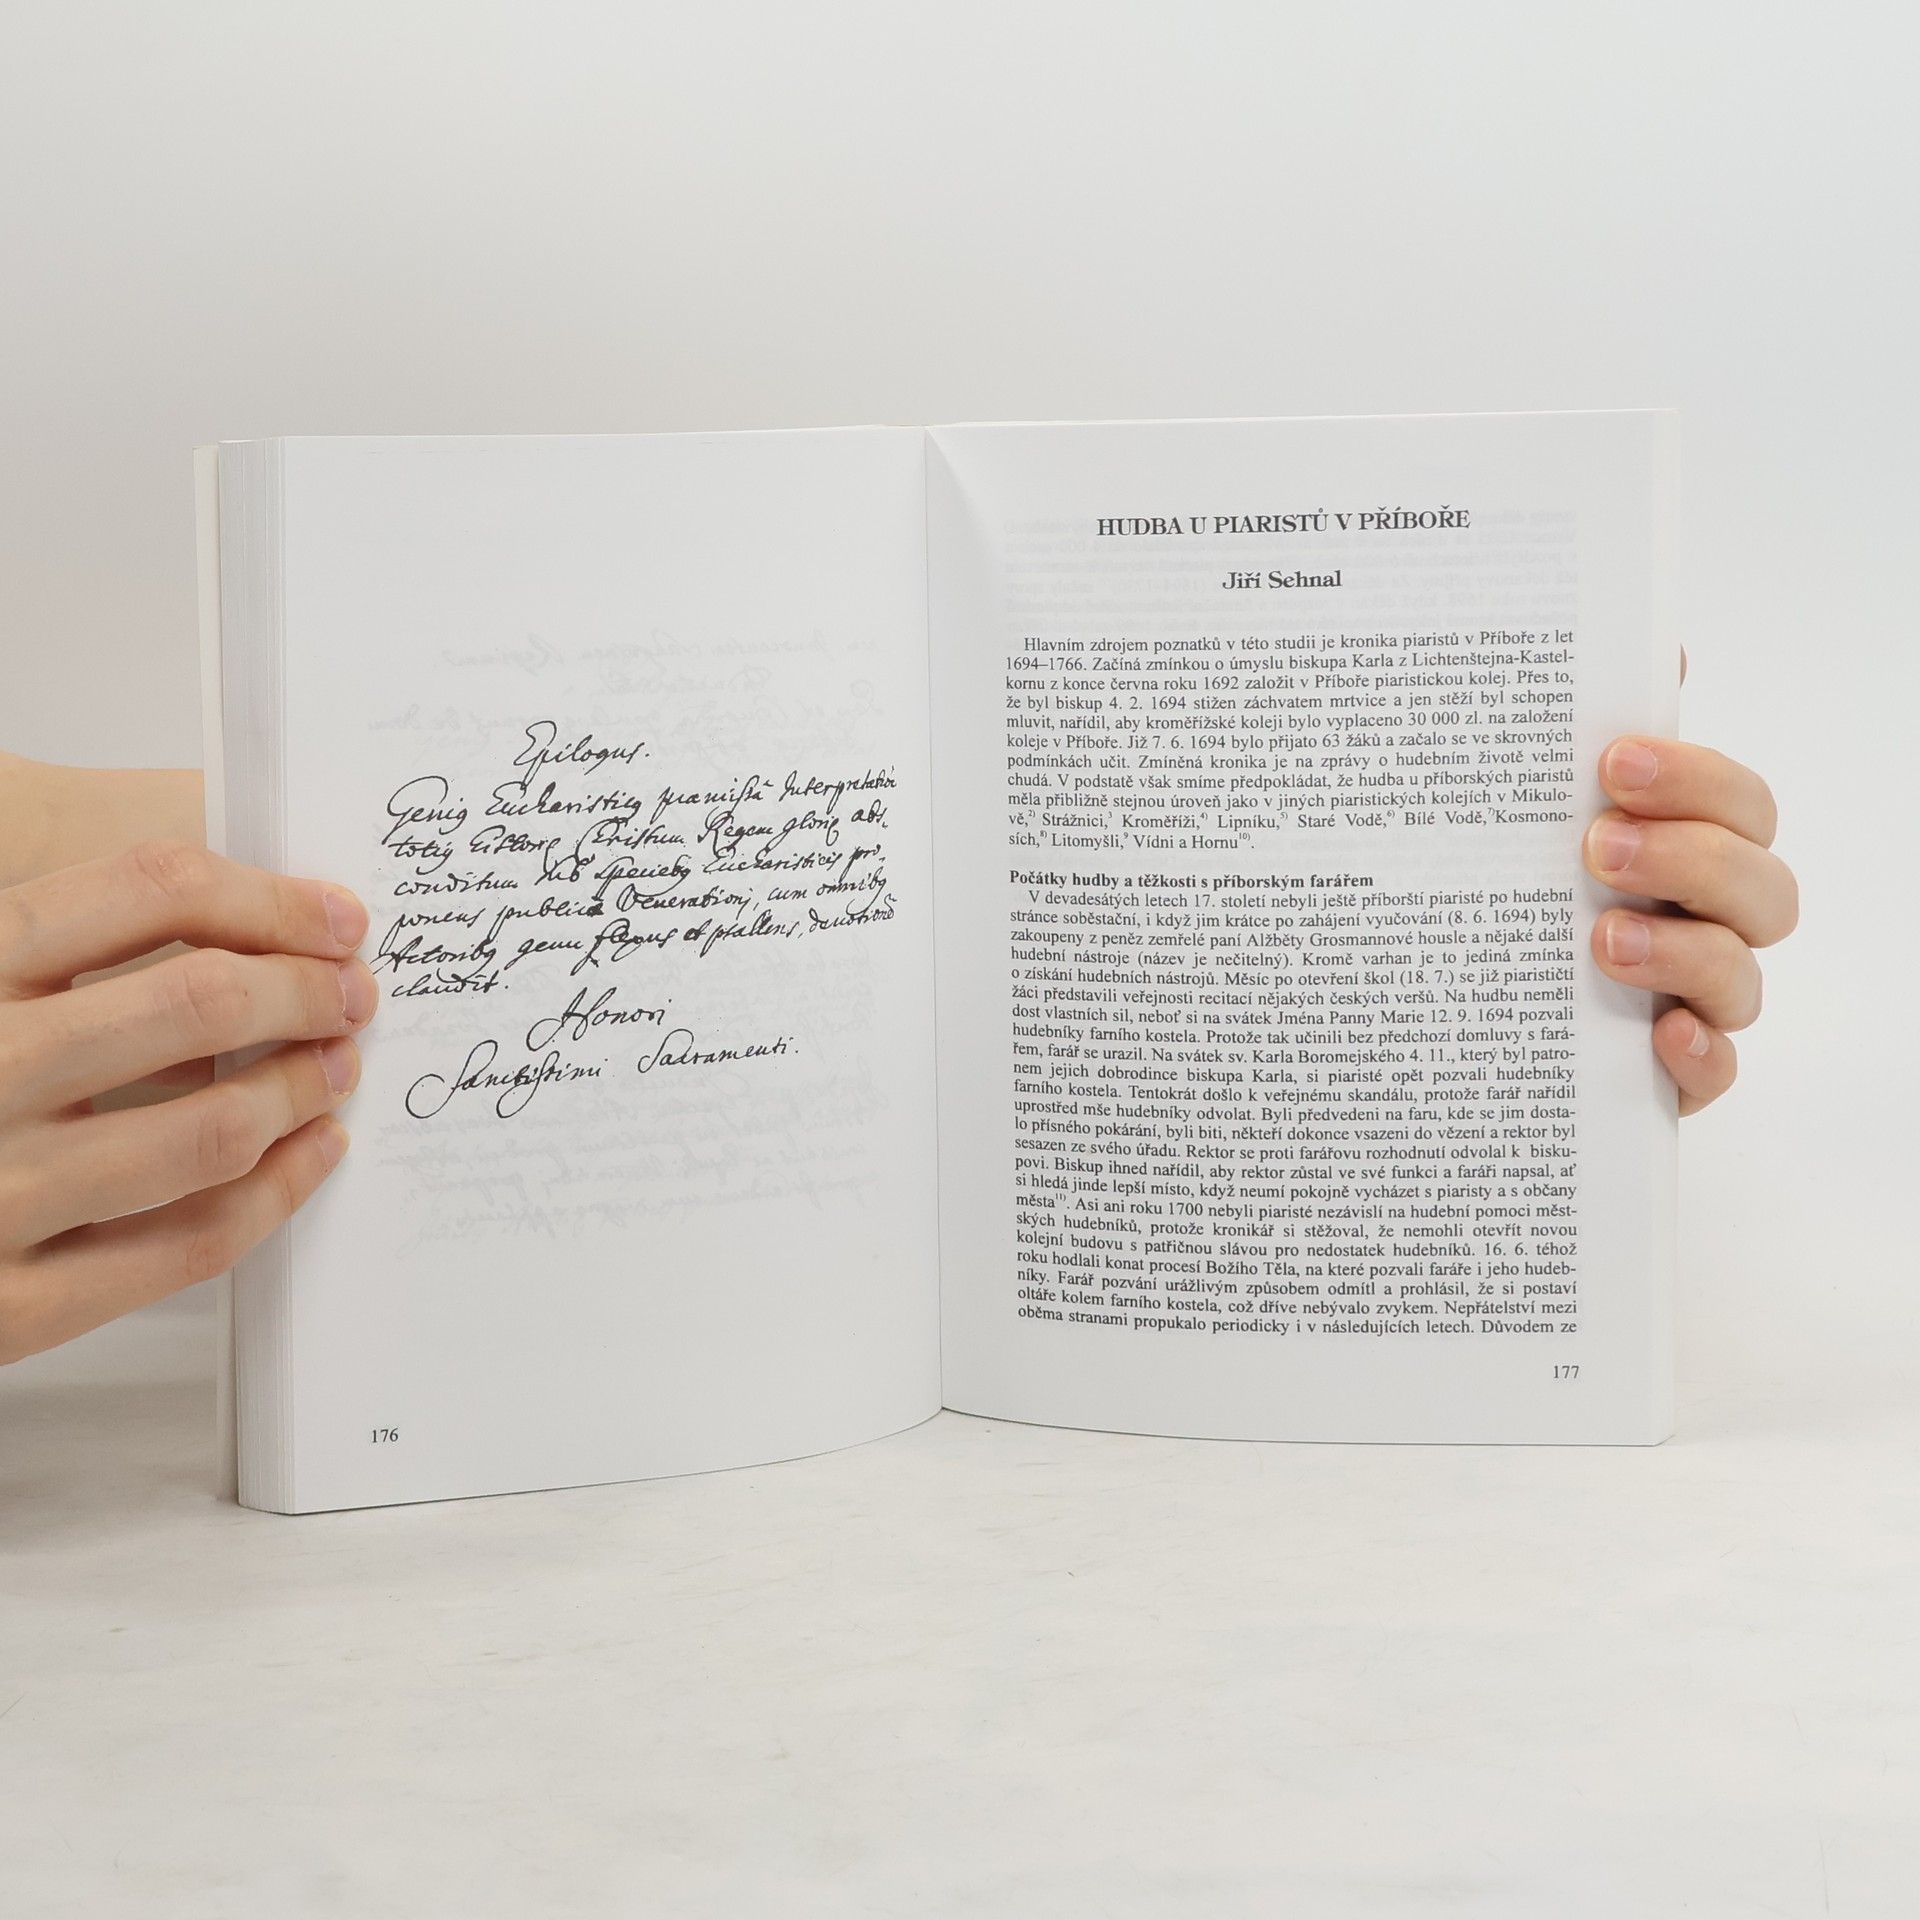 Epilogus.
Genig Eucharisticq præmissâ Interpretatiõe
totiq historiq Christum Regem gloriq abs-
conditum sub speciebq Eucharisticis pro-
ponens publicæ Venerationj, cum omnibq
Actoribq genu flexus et psallens, devotionẽ
claudit.
Honori
Sanctissimi Sacramenti.
176
HUDBA U PIARISTŮ V PŘÍBOŘE
Jiří Sehnal
Hlavním zdrojem poznatků v této studii je kronika piaristů v Příboře z let
1694–1766. Začíná zmínkou o úmyslu biskupa Karla z Lichtenštejna-Kastel-
kornu z konce června roku 1692 založit v Příboře piaristickou kolej. Přes to,
že byl biskup 4. 2. 1694 stižen záchvatem mrtvice a jen stěží byl schopen
mluvit, nařídil, aby kroměřížské koleji bylo vyplaceno 30 000 zl. na založení
koleje v Příboře. Již 7. 6. 1694 bylo přijato 63 žáků a začalo se ve skrovných
podmínkách učit. Zmíněná kronika je na zprávy o hudebním životě velmi
chudá. V podstatě však smíme předpokládat, že hudba u příborských piaristů
měla přibližně stejnou úroveň jako v jiných piaristických kolejích v Mikulo-
vě,²⁾ Strážnici,³ Kroměříži,⁴⁾ Lipníku,⁵⁾ Staré Vodě,⁶⁾ Bílé Vodě,⁷⁾Kosmono-
sích,⁸⁾ Litomyšli,⁹ Vídni a Hornu¹⁰⁾.
Počátky hudby a těžkosti s příborským farářem
V devadesátých letech 17. století nebyli ještě příborští piaristé po hudební
stránce soběstační, i když jim krátce po zahájení vyučování (8. 6. 1694) byly
zakoupeny z peněz zemřelé paní Alžběty Grosmannové housle a nějaké další
hudební nástroje (název je nečitelný). Kromě varhan je to jediná zmínka
o získání hudebních nástrojů. Měsíc po otevření škol (18. 7.) se již piarističtí
žáci představili veřejnosti recitací nějakých českých veršů. Na hudbu neměli
dost vlastních sil, neboť si na svátek Jména Panny Marie 12. 9. 1694 pozvali
hudebníky farního kostela. Protože tak učinili bez předchozí domluvy s fará-
řem, farář se urazil. Na svátek sv. Karla Boromejského 4. 11., který byl patro-
nem jejich dobrodince biskupa Karla, si piaristé opět pozvali hudebníky
farního kostela. Tentokrát došlo k veřejnému skandálu, protože farář nařídil
uprostřed mše hudebníky odvolat. Byli předvedeni na faru, kde se jim dosta-
lo přísného pokárání, byli biti, někteří dokonce vsazeni do vězení a rektor byl
sesazen ze svého úřadu. Rektor se proti farářovu rozhodnutí odvolal k bisku-
povi. Biskup ihned nařídil, aby rektor zůstal ve své funkci a faráři napsal, ať
si hledá jinde lepší místo, když neumí pokojně vycházet s piaristy a s občany
města¹¹⁾. Asi ani roku 1700 nebyli piaristé nezávislí na hudební pomoci měst-
ských hudebníků, protože kronikář si stěžoval, že nemohli otevřít novou
kolejní budovu s patřičnou slávou pro nedostatek hudebníků. 16. 6. téhož
roku hodlali konat procesí Božího Těla, na které pozvali faráře i jeho hudeb-
níky. Farář pozvání urážlivým způsobem odmítl a prohlásil, že si postaví
oltáře kolem farního kostela, což dříve nebývalo zvykem. Nepřátelství mezi
oběma stranami propukalo periodicky i v následujících letech. Důvodem ze
177